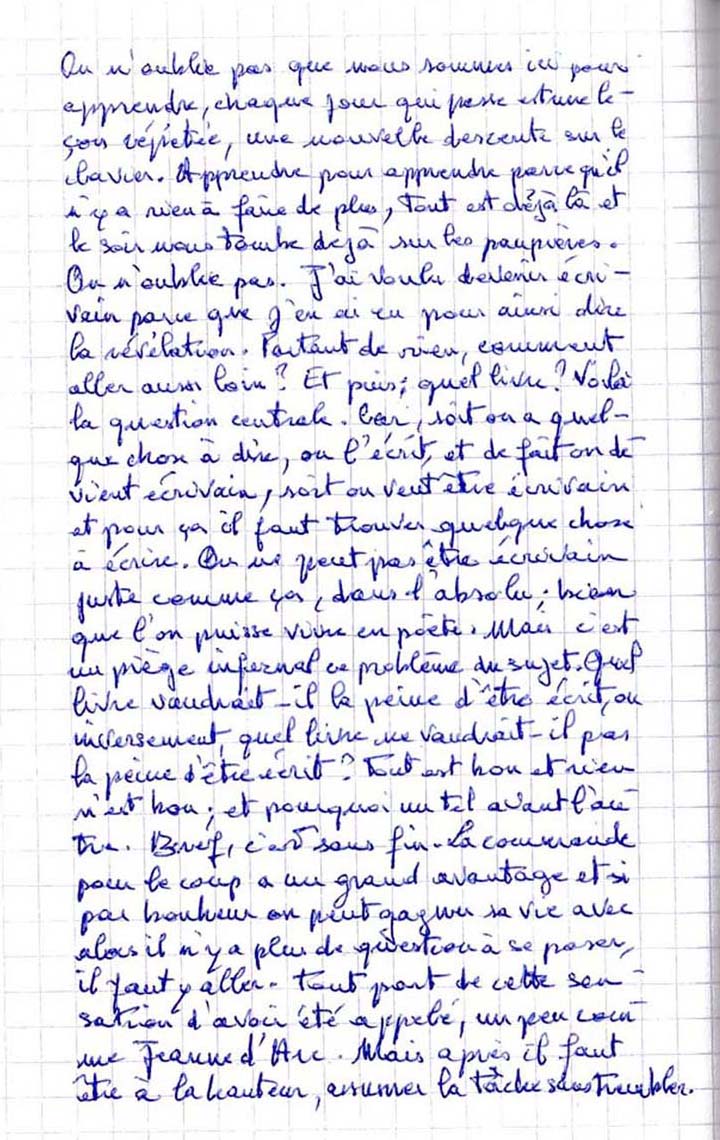 On n'oublie pas que nous sommes ici pour
apprendre, chaque jour qui passe est une le-
çon répétée, une nouvelle descente sur le
clavier. Apprendre pour apprendre parce qu'il
n'y a rien à faire de plus, tout est déjà là et
le soir nous tombe déjà sur les paupières.
On n'oublie pas. J'ai voulu devenir écri-
vain parce que j'en ai eu pour ainsi dire
la révélation. Partant de rien, comment
aller aussi loin ? Et puis ; quel livre ? Voilà
la question centrale. Car, soit on a quel-
que chose à dire, on l'écrit, et de fait on de
vient écrivain, soit on veut être écrivain
et pour ça il faut trouver quelque chose
à écrire. On ne peut pas être écrivain
juste comme ça, dans l'absolu ; bien
que l'on puisse vivre en poète. Mais c'est
un piège infernal ce problème du sujet. Quel
livre vaudrait-il la peine d'être écrit, ou
inversement, quel livre ne vaudrait-il pas
la peine d'être écrit ? Tout est bon et rien
n'est bon ; et pourquoi un tel avant l'au
tre. Bref, c'est sans fin. La commande
pour le coup a un grand avantage et si
par bonheur on peut gagner sa vie avec
alors il n'y a plus de question à se poser,
il faut y aller. Tout part de cette sen-
sation d'avoir été appelé, un peu com
me Jeanne d'Arc. Mais après il faut
être à la hauteur, assumer la tâche sans trembler.